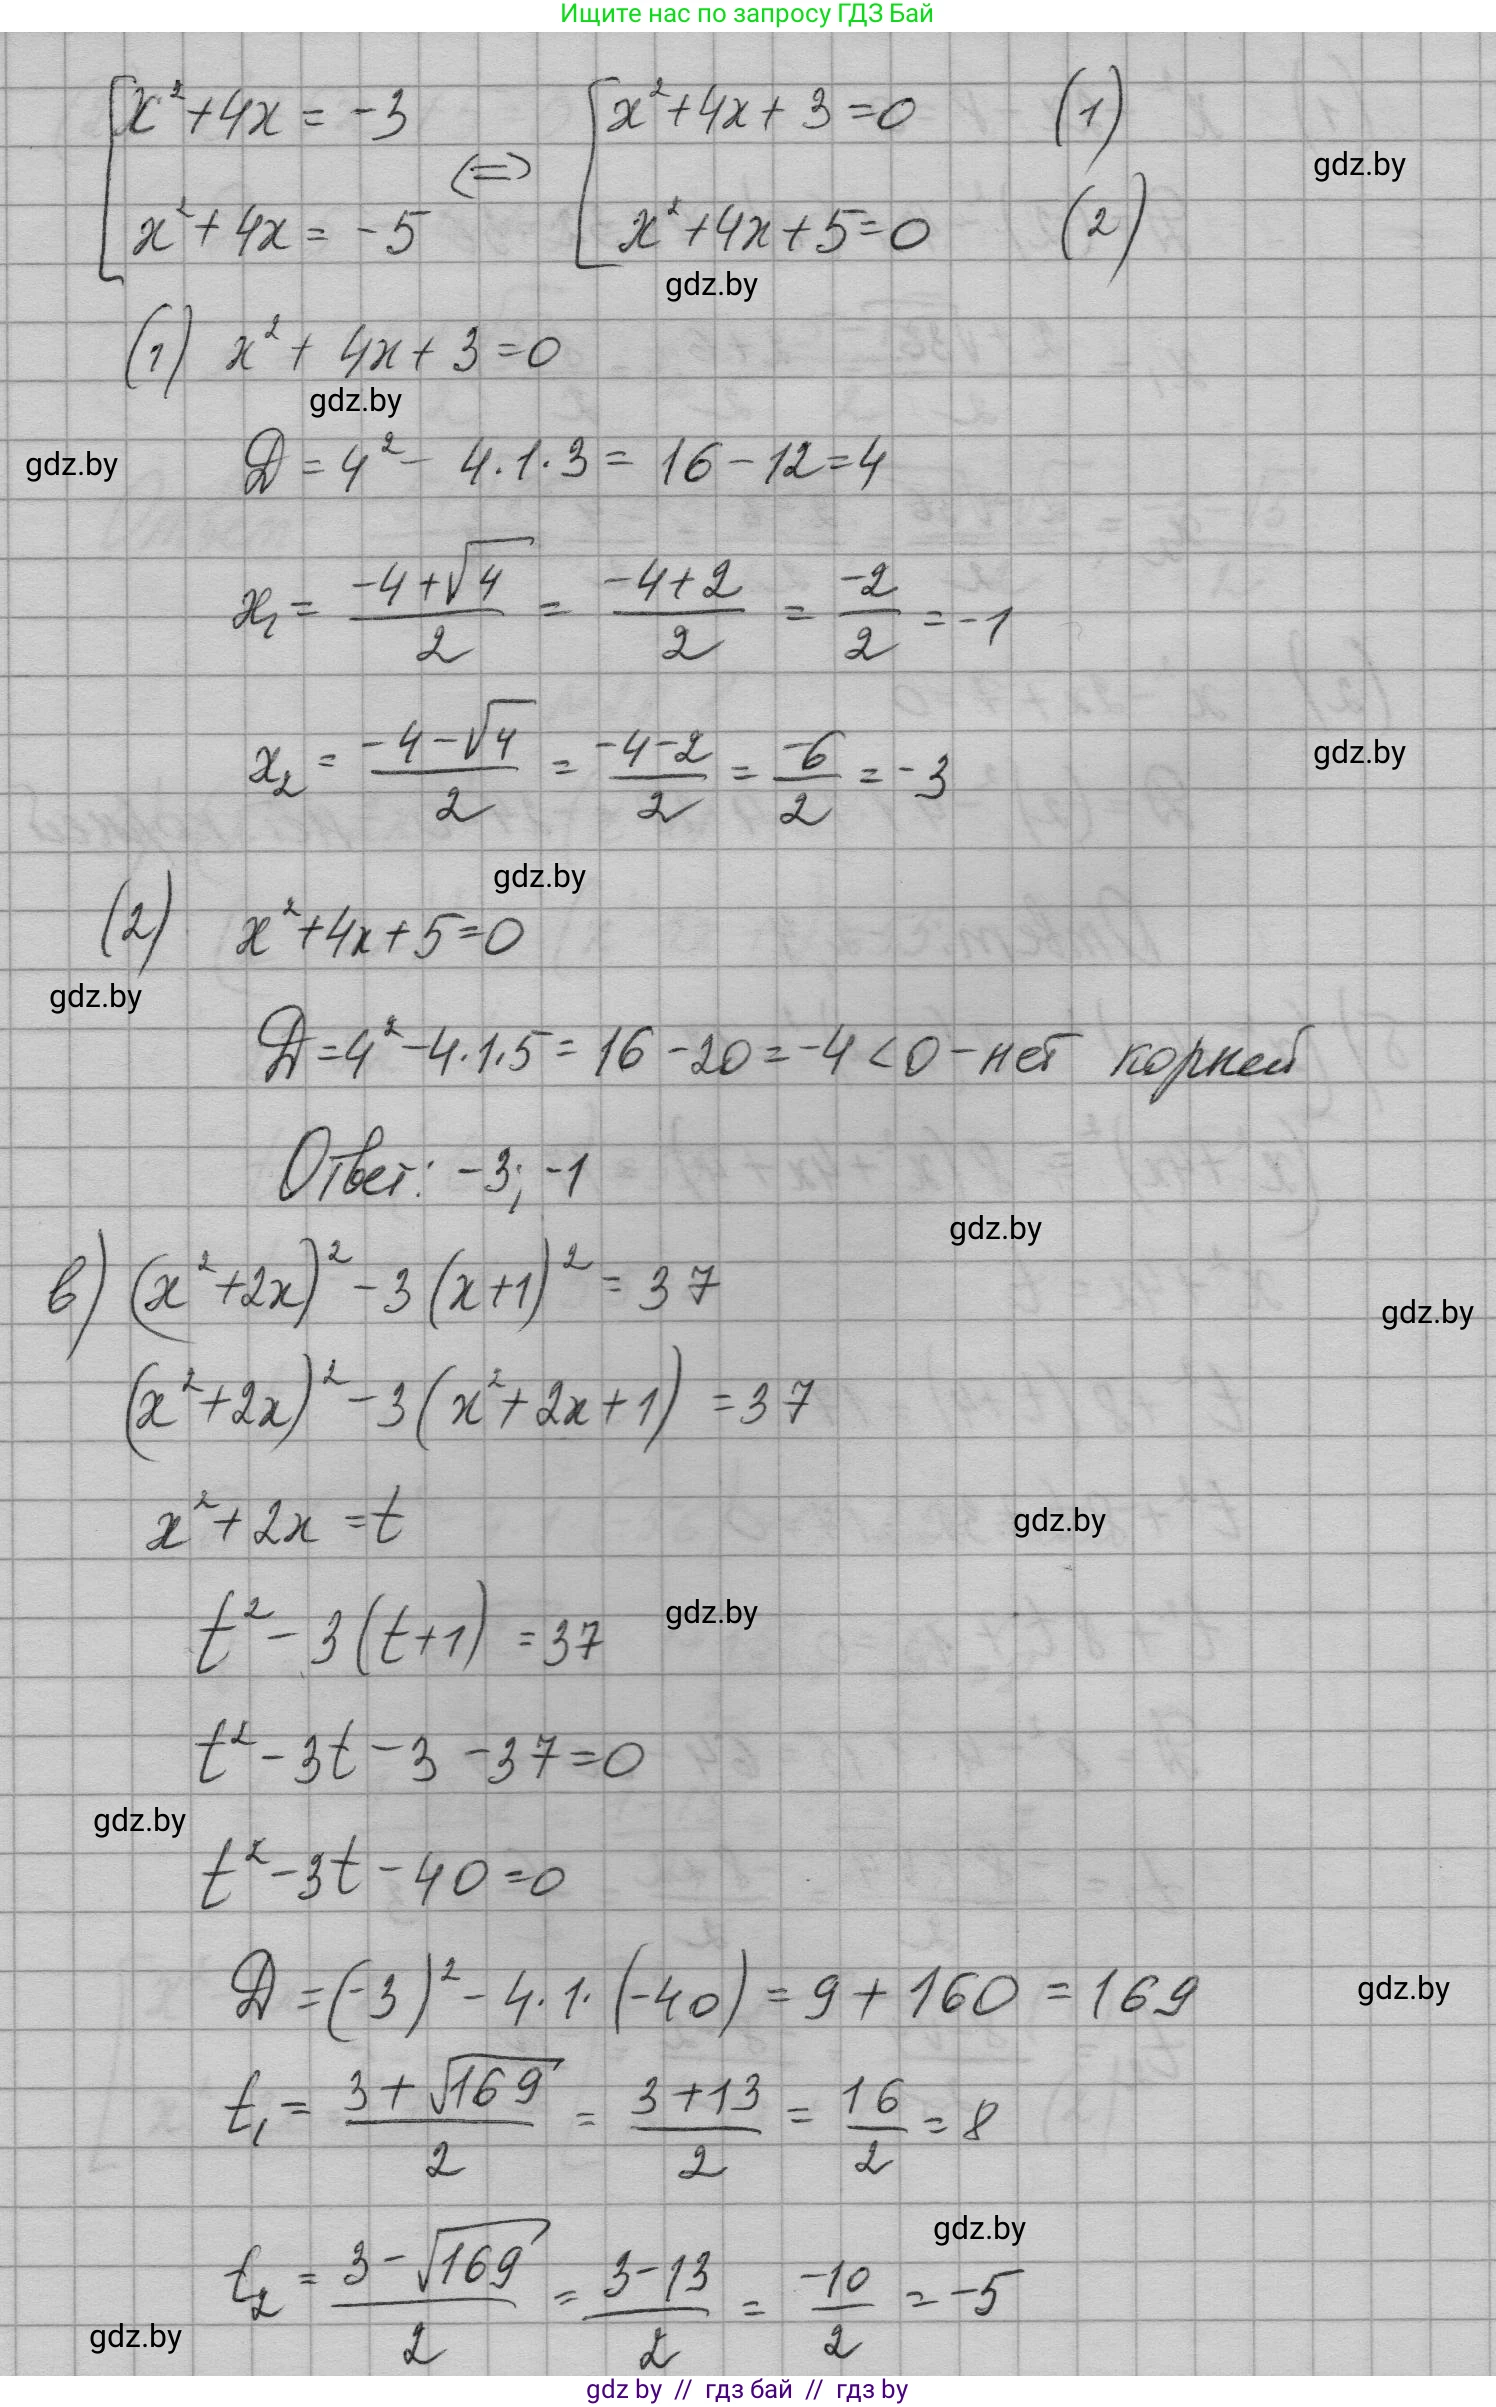 Ищите нас по запросу ГДЗ Бай
x² + 4x = -3 (=) x² + 4x + 3 = 0 (1)
gdz.by
x² + 4x = -5 x² + 4x + 5 = 0 (2)
gdz.by
(1) x² + 4x + 3 = 0
gdz.by
gdz.by
D = 4² - 4·1·3 = 16 - 12 = 4
x₁ = (-4 + √4)/2 = (-4 + 2)/2 = -2/2 = -1
x₂ = (-4 - √4)/2 = (-4 - 2)/2 = -6/2 = -3
gdz.by
gdz.by
(2) x² + 4x + 5 = 0
gdz.by
D = 4² - 4·1·5 = 16 - 20 = -4 < 0 - нет корней
Ответ: -3; -1
gdz.by
в) (x² + 2x)² - 3(x + 1)² = 37
gdz.by
(x² + 2x)² - 3(x² + 2x + 1) = 37
x² + 2x = t
gdz.by
gdz.by
t² - 3(t + 1) = 37
t² - 3t - 3 - 37 = 0
gdz.by
t² - 3t - 40 = 0
D = (-3)² - 4·1·(-40) = 9 + 160 = 169
gdz.by
t₁ = (3 + √169)/2 = (3 + 13)/2 = 16/2 = 8
gdz.by
t₂ = (3 - √169)/2 = (3 - 13)/2 = -10/2 = -5
gdz.by
gdz by // гдз бай // гдз by